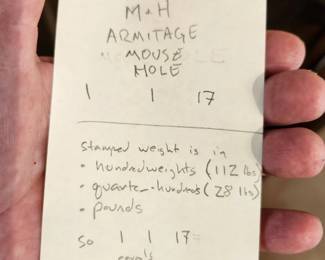 M + H
ARMITAGE
MOUSE
HOLE
1 1 17
stamped weight is in
• hundredweights (112 lbs)
• quarter-hundreds (28 lbs)
• pounds
so 1 1 17 =
equals